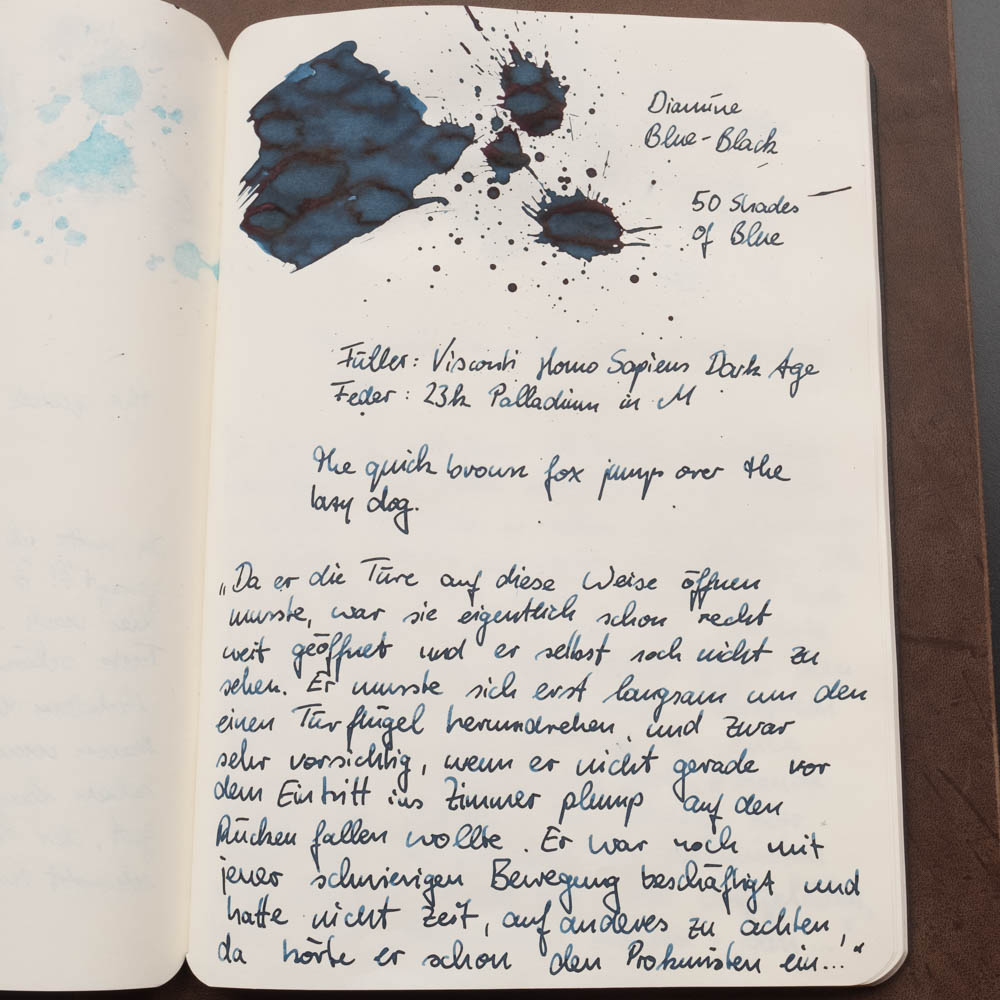 Diamine
Blue-Black
50 Shades
of Blue
Füller: Visconti Homo Sapiens Dark Age
Feder: 23k Palladium in M
the quick brown fox jump over the
lazy dog.
„Da er die Türe auf diese Weise öffnen
musste, war sie eigentlich schon recht
weit geöffnet und er selbst noch nicht zu
sehen. Er musste sich erst langsam um den
einen Türflügel herumdrehen, und zwar
sehr vorsichtig, wenn er nicht gerade vor
dem Eintritt ins Zimmer plump auf den
Rücken fallen wollte. Er war noch mit
jener schwierigen Bewegung beschäftigt und
hatte nicht Zeit, auf anderes zu achten,
da hörte er schon den Prokuristen ein..."